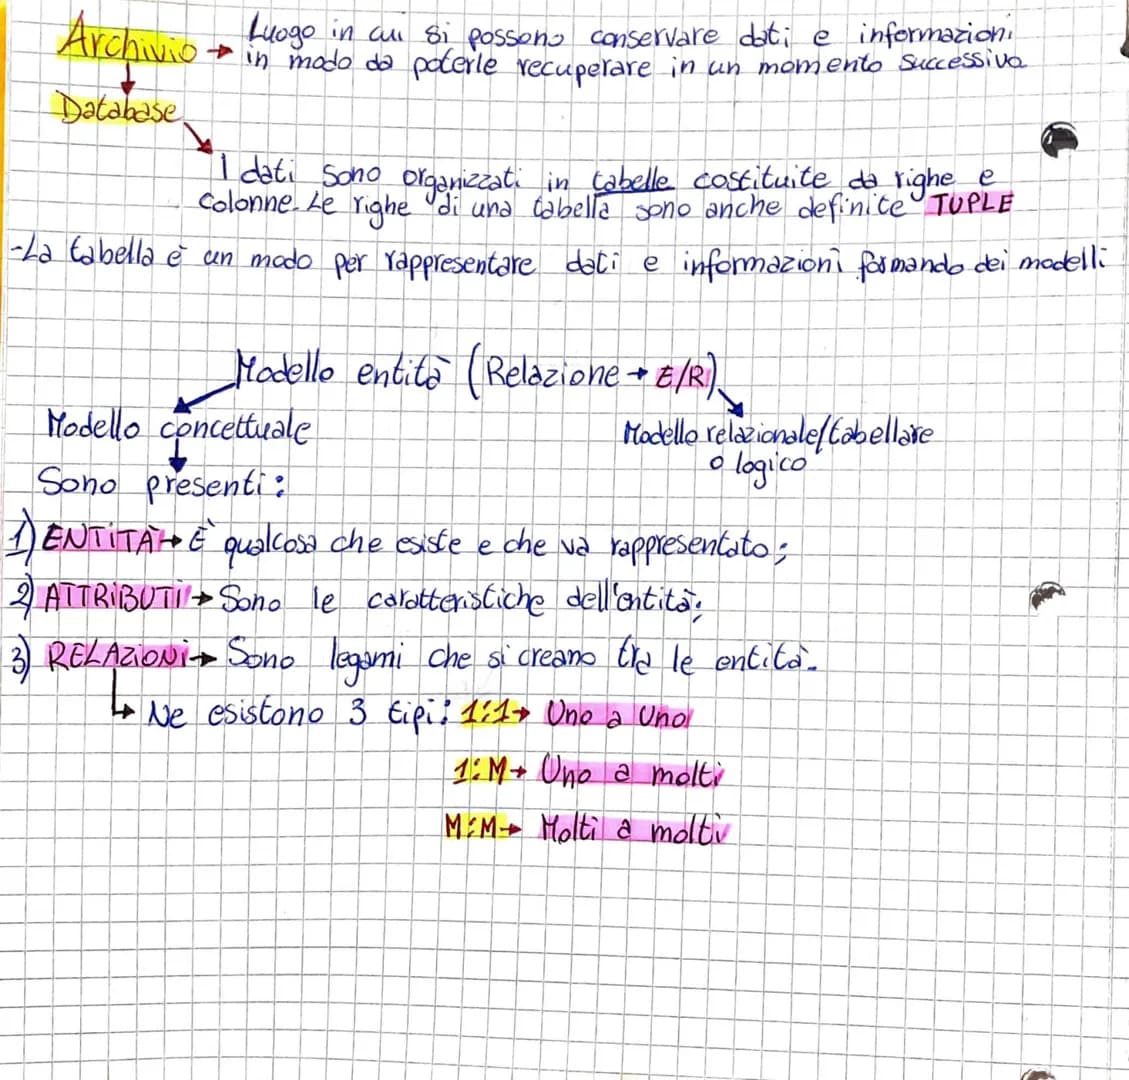 Archivio → Luogo in cui si possono conservare dati e informazioni
in modo da poterle recuperare in un momento successivo
Database
I dati sono organizzati in tabelle costituite da righe e
colonne. Le righe di una tabella sono anche definite TUPLE
-La tabella è un modo per rappresentare dati e informazioni formando dei modelli
Modello entità (Relazione → E/R)
Modello concettuale
Modello relazionale/tabellare
o logico
Sono presenti:
1) ENTITÀ → È qualcosa che esiste e che va rappresentato;
2) ATTRIBUTI → Sono le caratteristiche dell'entità;
3) RELAZIONI → Sono legami che si creano tra le entità.
↳ Ne esistono 3 tipi: 1:1 → Uno a Uno
1:M → Uno a molti
M:M → Molti a molti